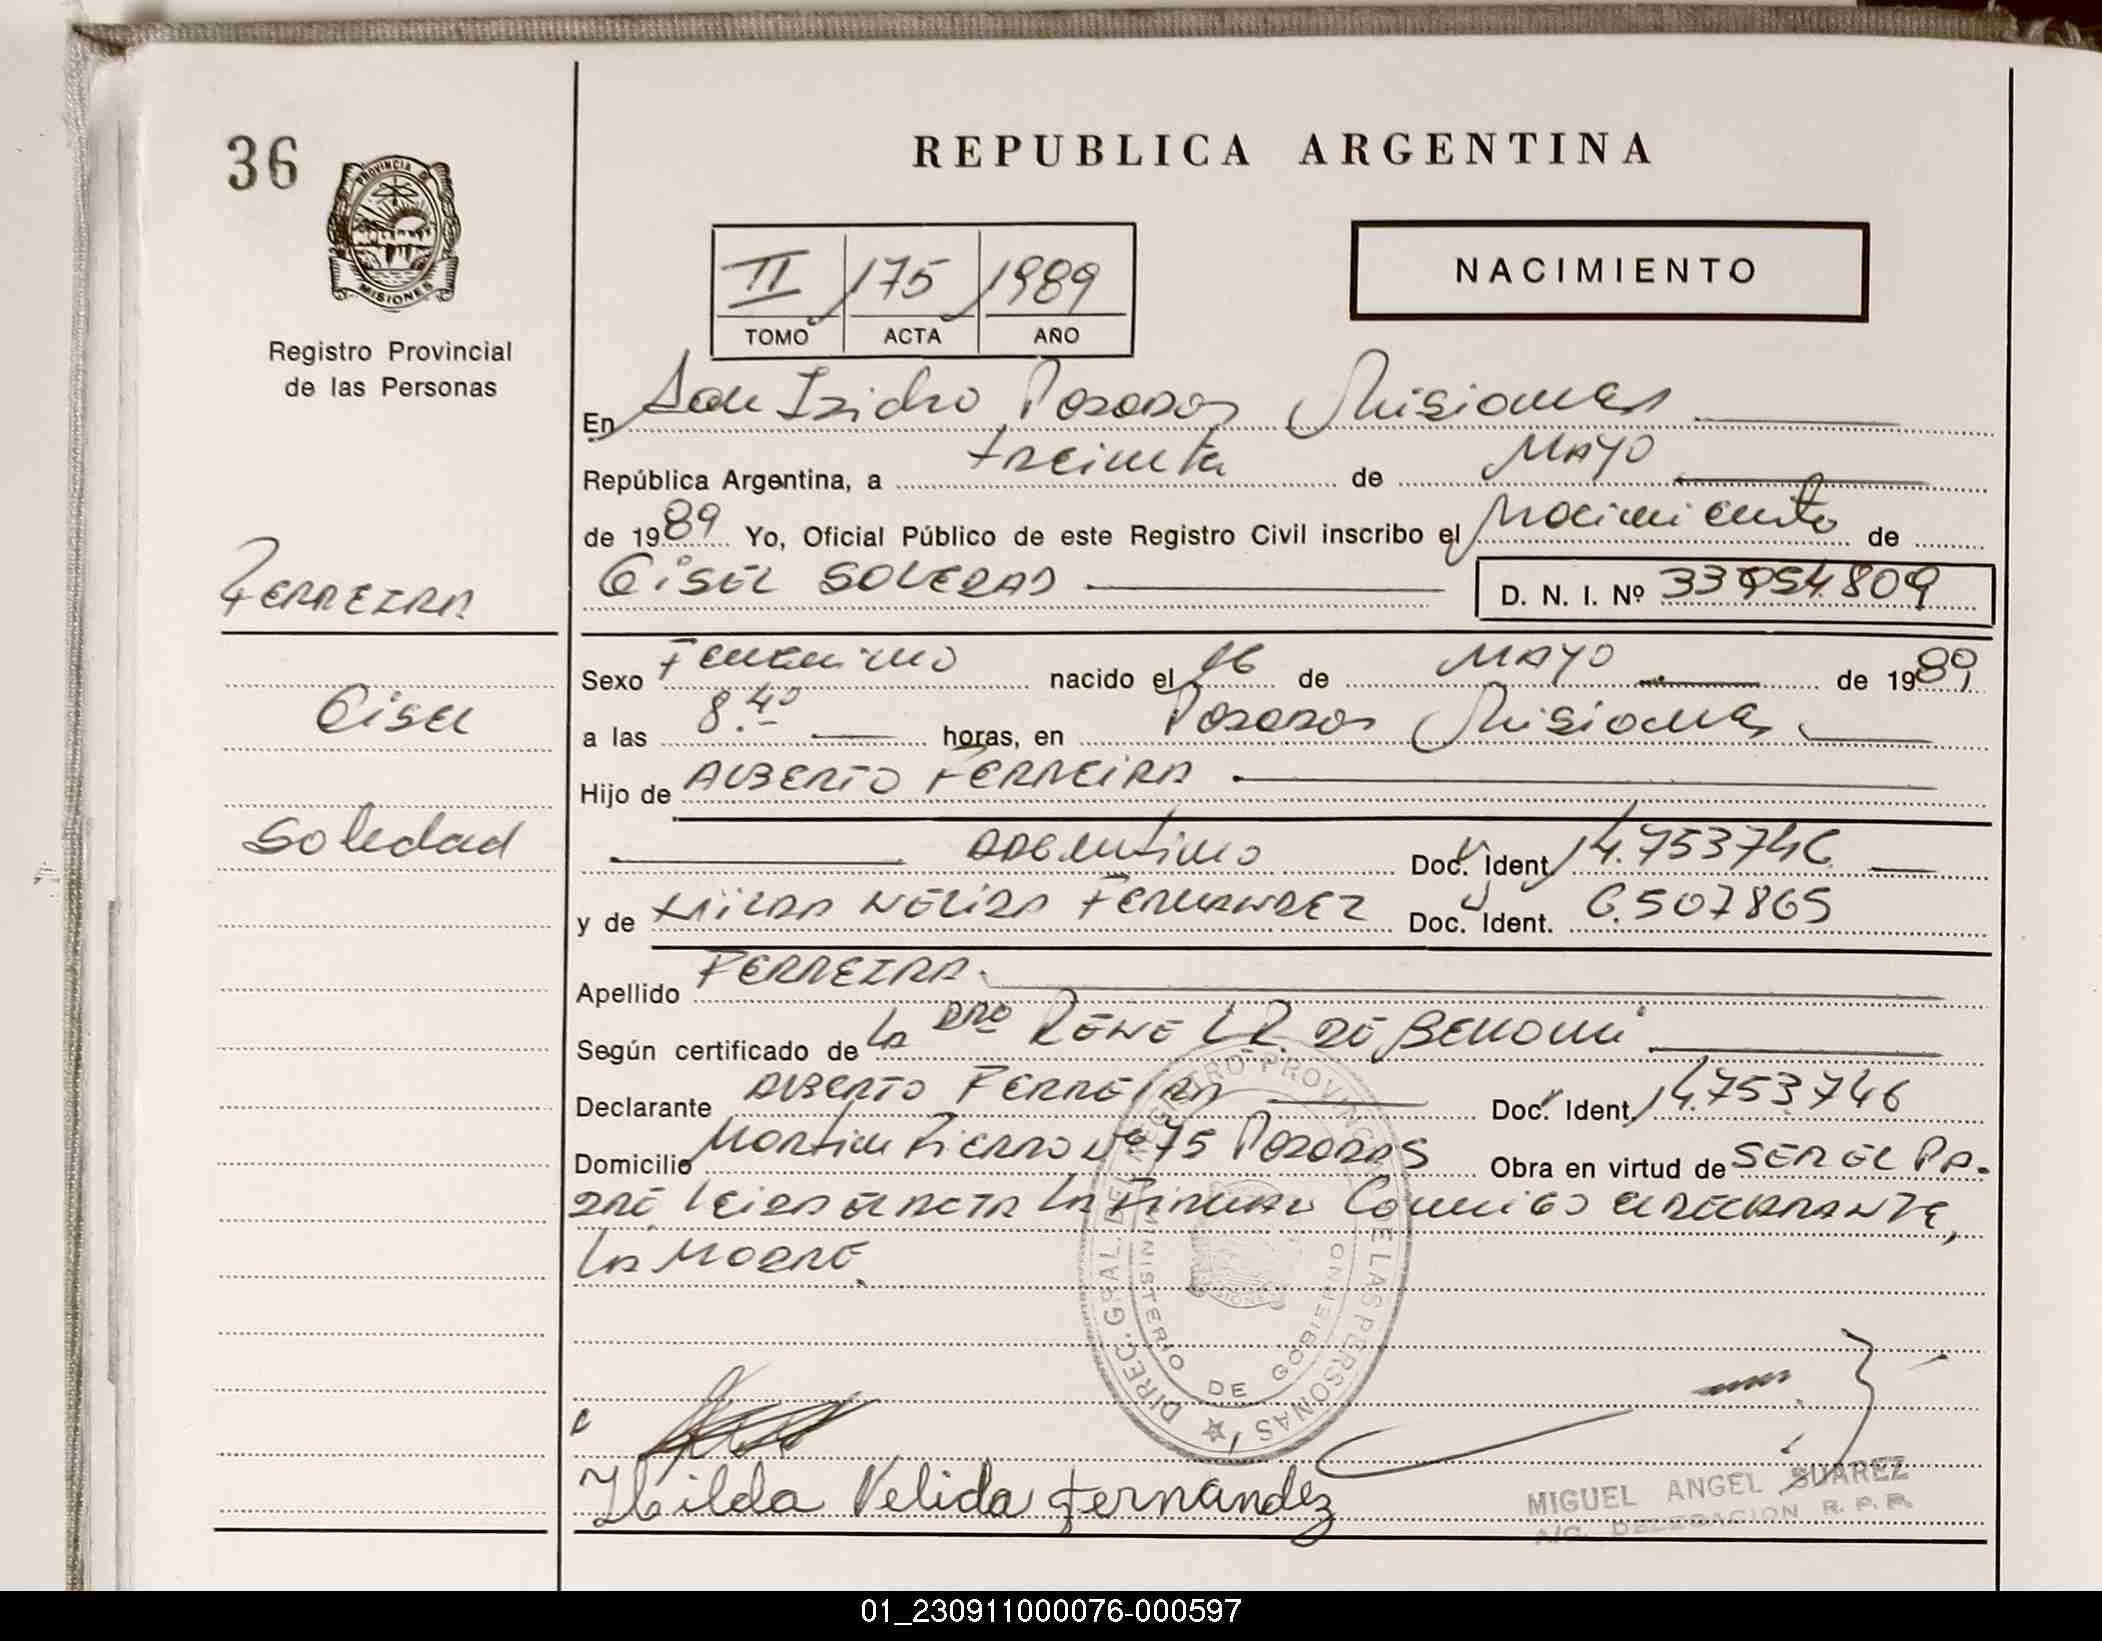 36
PROVINCIA DE
MISIONES
Registro Provincial
de las Personas
REPUBLICA ARGENTINA
II 175 1989
TOMO ACTA AÑO
NACIMIENTO
En San Isidro Posadas Misiones
República Argentina, a treinta de MAYO
de 1989 Yo, Oficial Público de este Registro Civil inscribo el Nacimiento de
GISEL SOLEDAD
D. N. I. Nº 33.954.809
FERREIRA
Gisel
Soledad
Sexo Femenino nacido el 16 de MAYO de 1989
a las 8.40 horas, en Posadas Misiones
Hijo de ALBERTO FERREIRA
ARGENTINO Doc. Ident. 14.753746
y de HILDA NELIDA FERNANDEZ Doc. Ident. 6.507865
Apellido FERREIRA
Según certificado de la DRA RENE L R DE BENONI
Declarante ALBERTO FERREIRA Doc. Ident. 14.753.746
Domicilio Martin Fierro Nº 75 POSADAS Obra en virtud de SER EL PA-
DRE LEIDA EL ACTA LA FIRMAN CONMIGO EL DECLARANTE,
LA MADRE.
DIREC. GRAL. DEL REGISTRO PROVINCIAL DE LAS PERSONAS
MINISTERIO DE GOBIERNO
MISIONES
Hilda Nelida Fernandez
MIGUEL ANGEL SUAREZ
A/C. DELEGACION R. P. P.
01_230911000076-000597